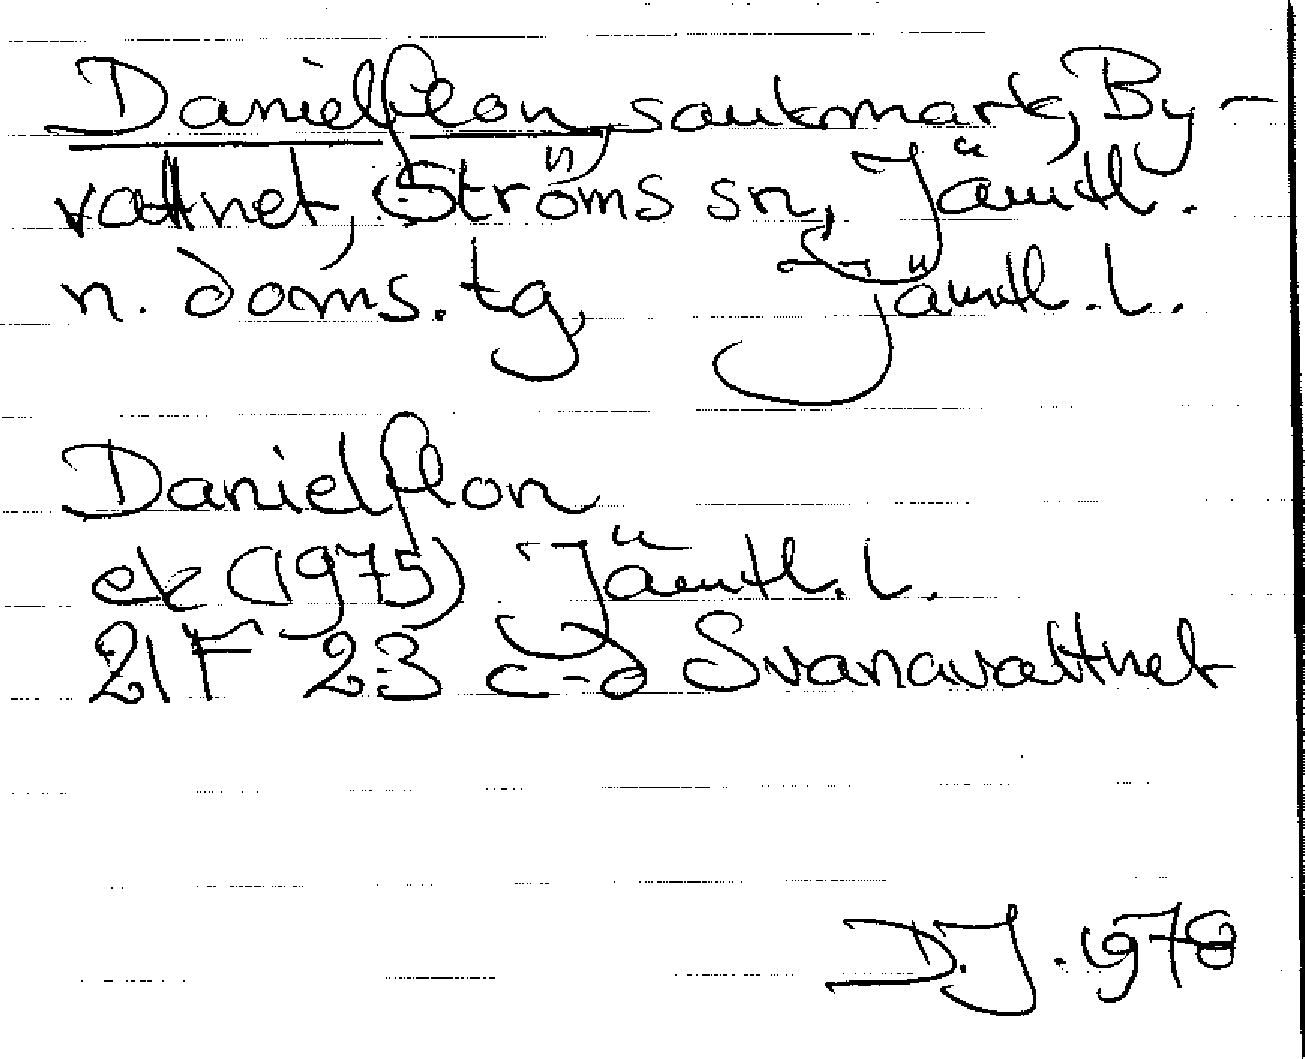 Danielflon, sankmark, By-
vattnet, Ströms sn, Jämtl.
n. doms. tg, Jämtl. l.
Danielflon
ek (1975) Jämtl. l.
21F 23 c-d Svanavattnet
D.J. 1978